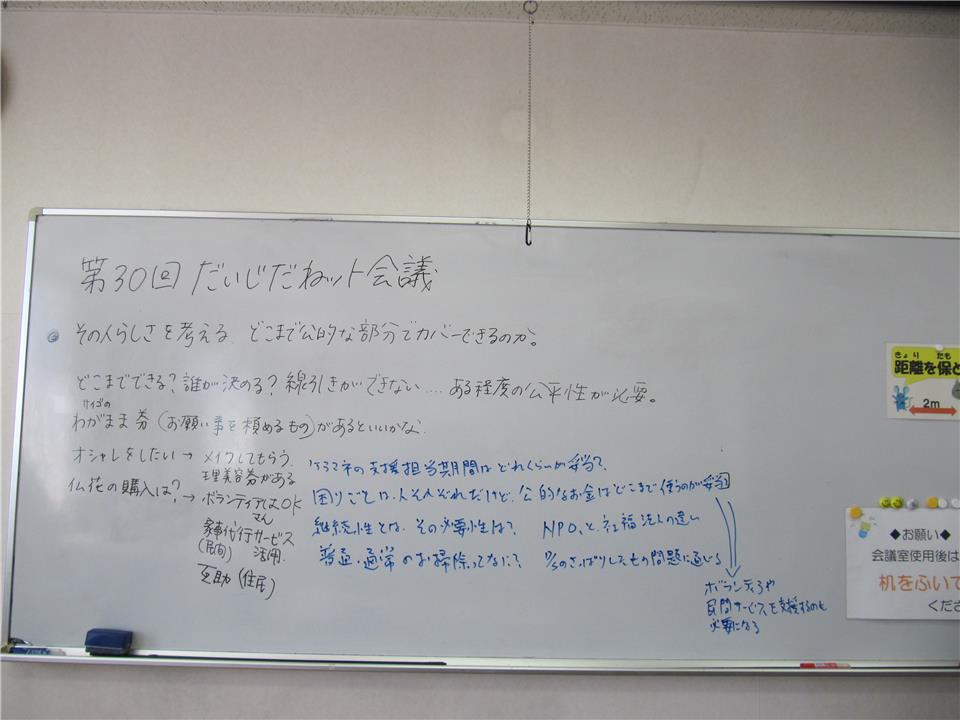 第30回 だいじだねット会議
その人らしさを考える どこまで公的な部分でカバーできるのか。
どこまでできる？誰が決める？線引きができない .... ある程度の公平性が必要。
サイゴの
わがまま券（お願い事を頼めるもの）があるといいかな
オシャレをしたい → メイクしてもらう
理美容券がある
仏花の購入は？ → ボランティアはOK
さん
家事代行サービス
(民間) 活用
互助（住民）
ケアマネの支援担当期間はどれくらいが妥当？
困りごとは人それぞれだけど、公的なお金はどこまで使うのが妥当
継続性とは、その必要性は？ NPO、と、社福法人の違い
普通・通常のお掃除ってなに？ したもの問題に通じる
ボランティアや
民間サービスを支援するのも
必要になる
きょり たも
距離を保と
2m
◆お願い◆
会議室使用後は
机をふいて
くださ